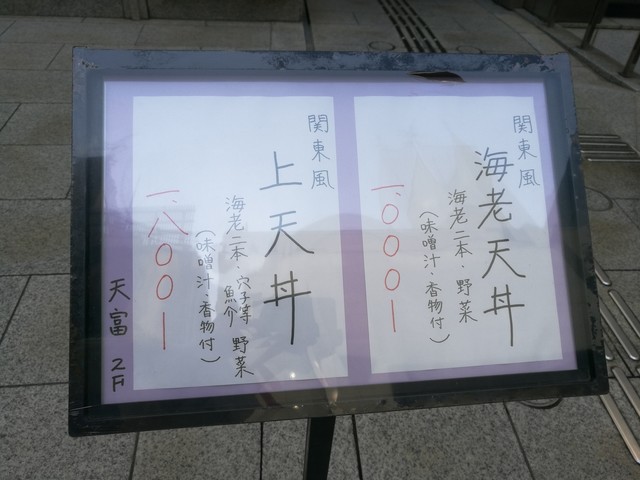 関東風
海老天丼
海老二本・野菜
(味噌汁・香物付)
一、〇〇〇ー
関東風
上天丼
海老二本・穴子等魚介 野菜
(味噌汁・香物付)
一、八〇〇ー
天富 2F